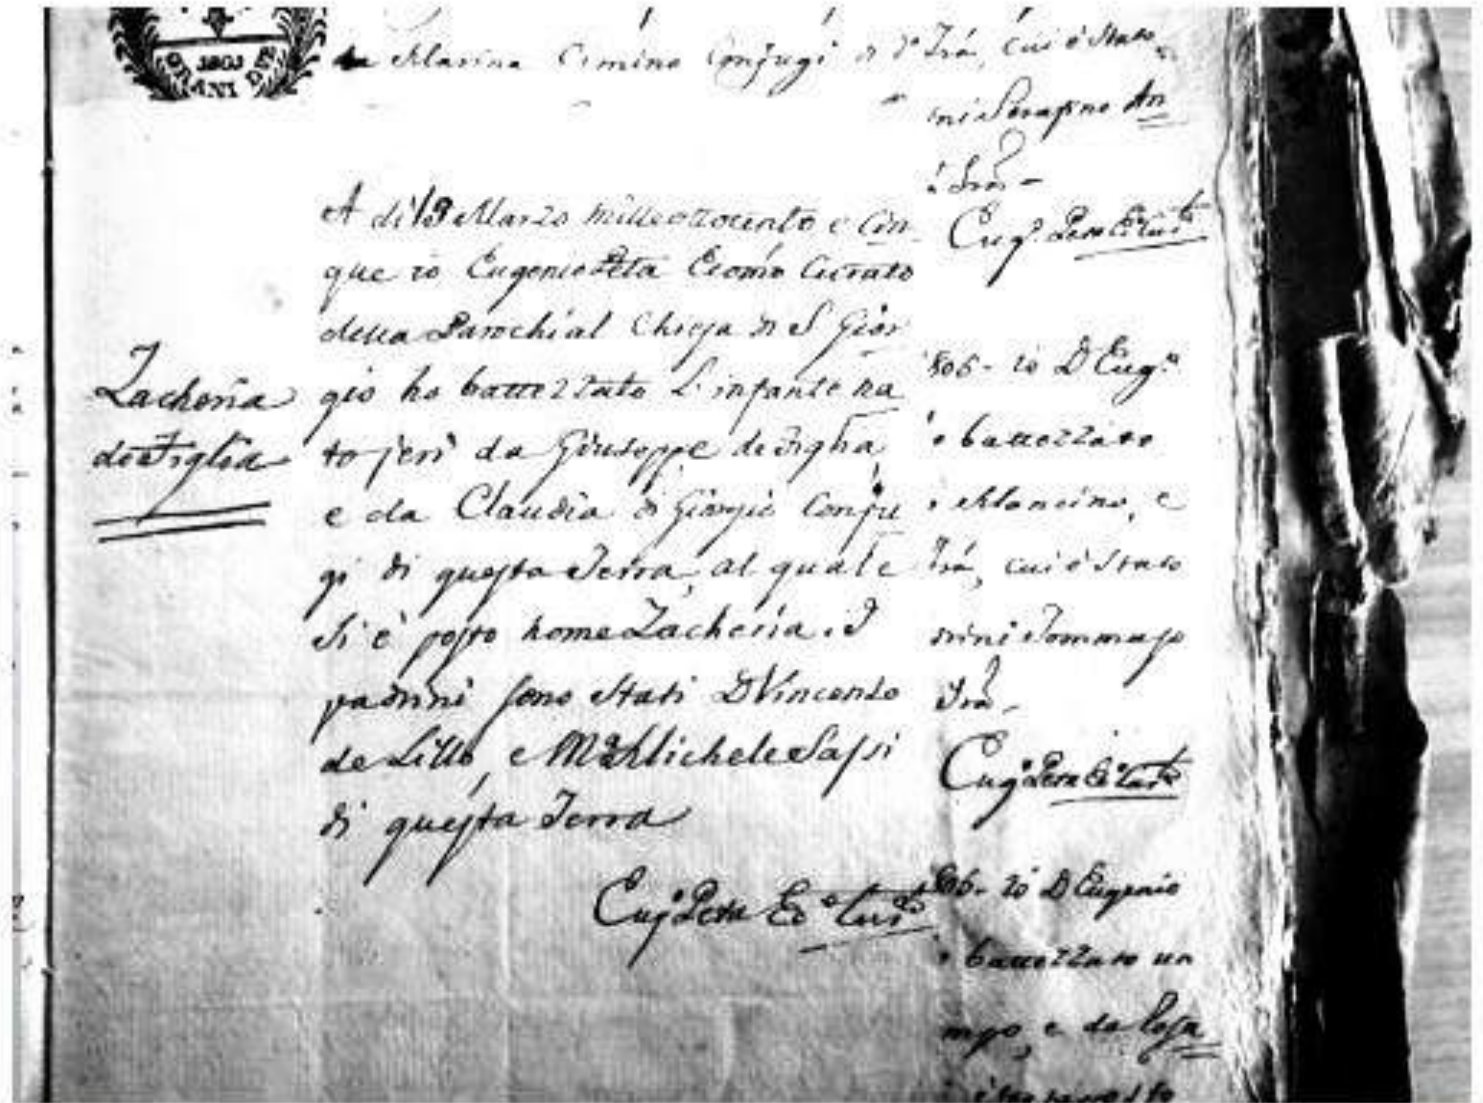 1803
GRANI DE
Marina Cimino Conjugi di d.ª Trá, cui è Stato
A di Marzo milleottocento e Cin
que io Eugenio Peta Ecomo Curato
della Parochial Chiesa di S Gior
gio ho battezzato L'infante na
to jeri da Giuseppe de Figlia
e da Claudia di Giorgio Conju
gi di questa Terra, al quale
Si è posto nome Zacheria. I
padrini sono Stati D Vincenzo
de Lillo, e Michele Sassi
di questa Terra
Eug.º Peta Ec.º Cur.to
Zacheria
de Figlia
ni Serafino An
Eug.º Peta Ec.º Cur.to
806 - io D Eug.º
battezzato
Mancino, e
Trá, cui è Stato
drini Tommaso
Trá -
Eug.º Peta Ec.º Cur.to
806 - io D Eugenio
battezzato un
e da Rosa